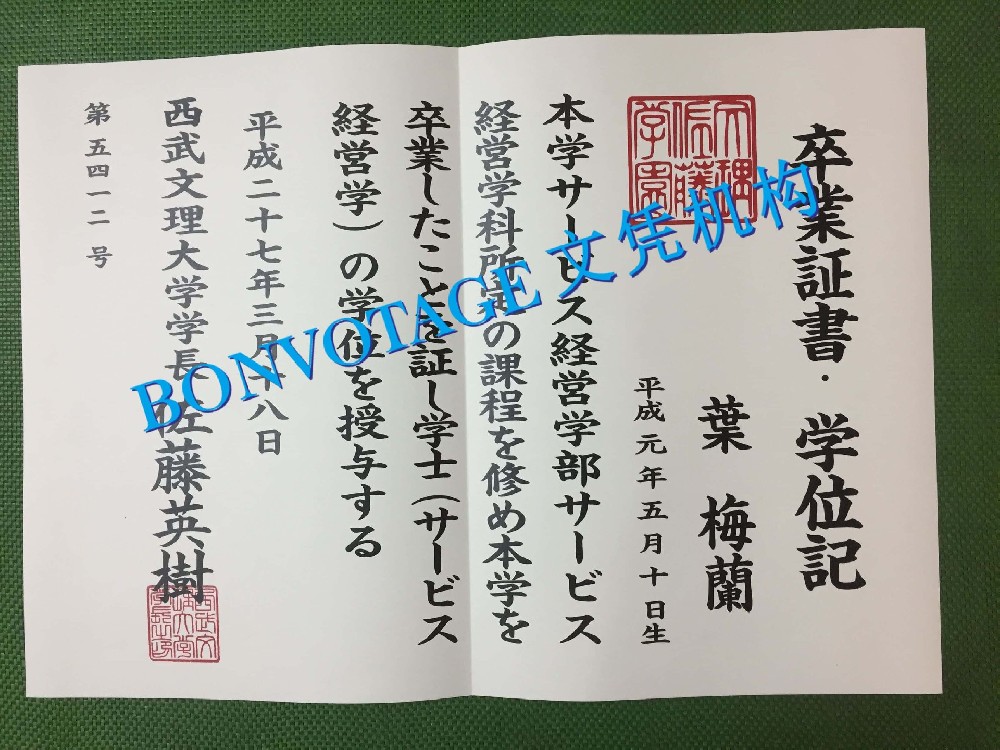 卒業証書・学位記
葉梅蘭
平成元年五月十日生
本学サービス経営学部サービス
経営学科所定の課程を修め本学を
卒業したことを証し学士(サービス
経営学)の学位を授与する
平成二十七年三月十八日
西武文理大学学長 佐藤英樹
第五四一二号
文理佐藤学園
BONVOTAGE文凭机构